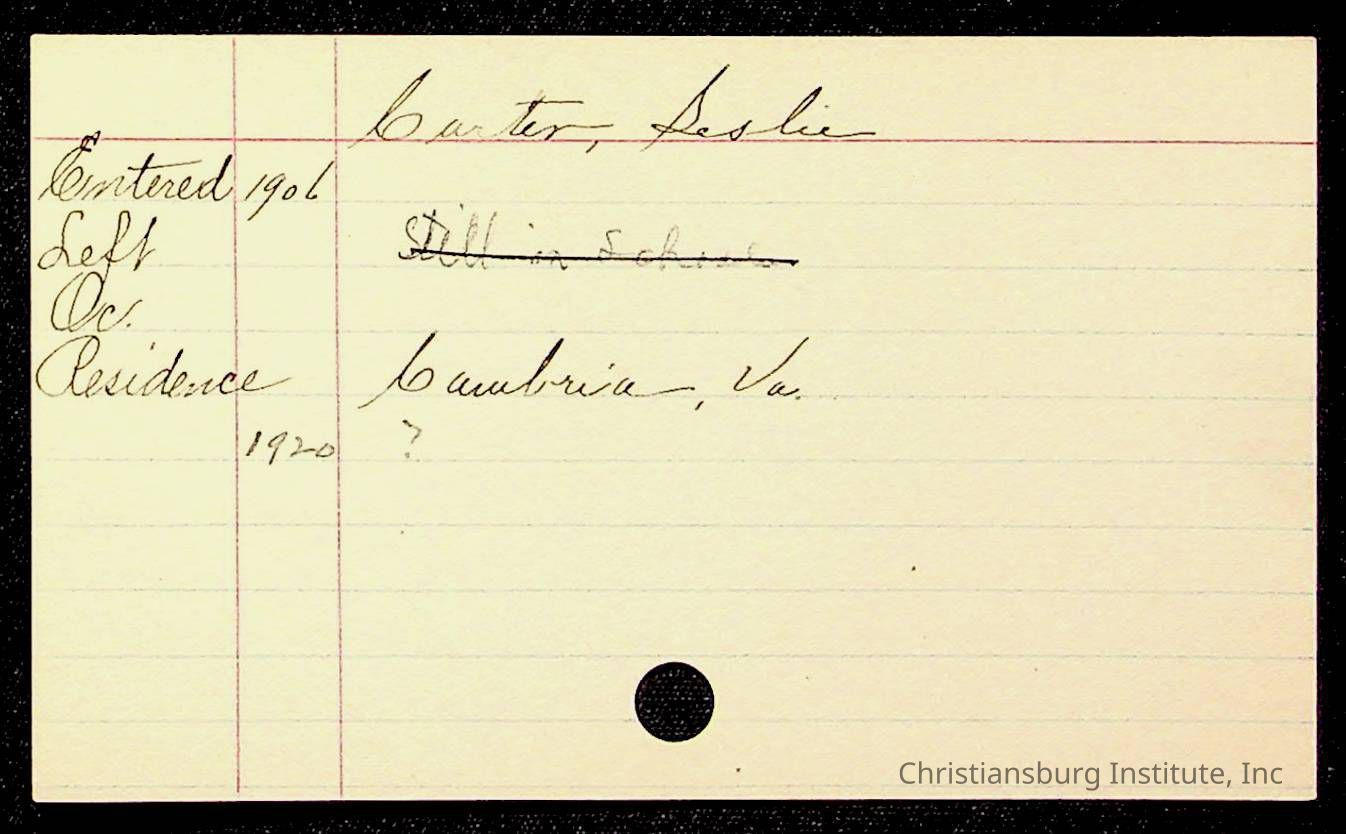 Carter, Leslie
Entered 1906
Left Still in School
Oc.
Residence Cambria, Va.
1920 ?
Christiansburg Institute, Inc